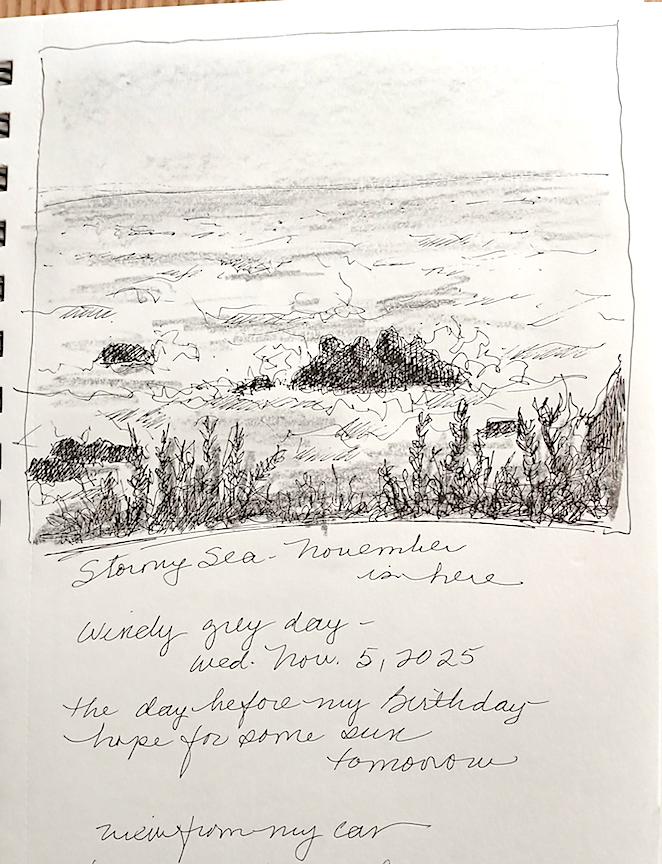 Stormy Sea - November
is here
Windy grey day -
Wed. Nov. 5, 2025
the day before my Birthday
hope for some sun
tomorrow
view from my car